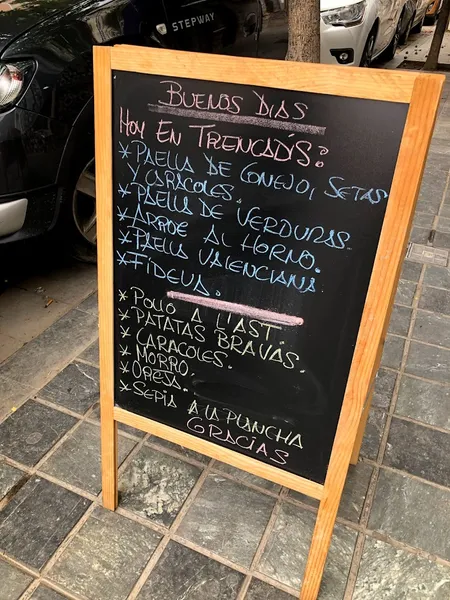 STEPWAY
BUENOS DIAS
HOY EN TRENCADÍS:
*PAELLA DE CONEJO, SETAS
Y CARACOLES.
*PAELLA DE VERDURAS.
*ARROZ AL HORNO.
*PAELLA VALENCIANA.
*FIDEUA.
*POLLO A L'AST.
*PATATAS BRAVAS.
*CARACOLES.
*MORRO.
*OREJA.
*SEPIA A LA PLANCHA
GRACIAS